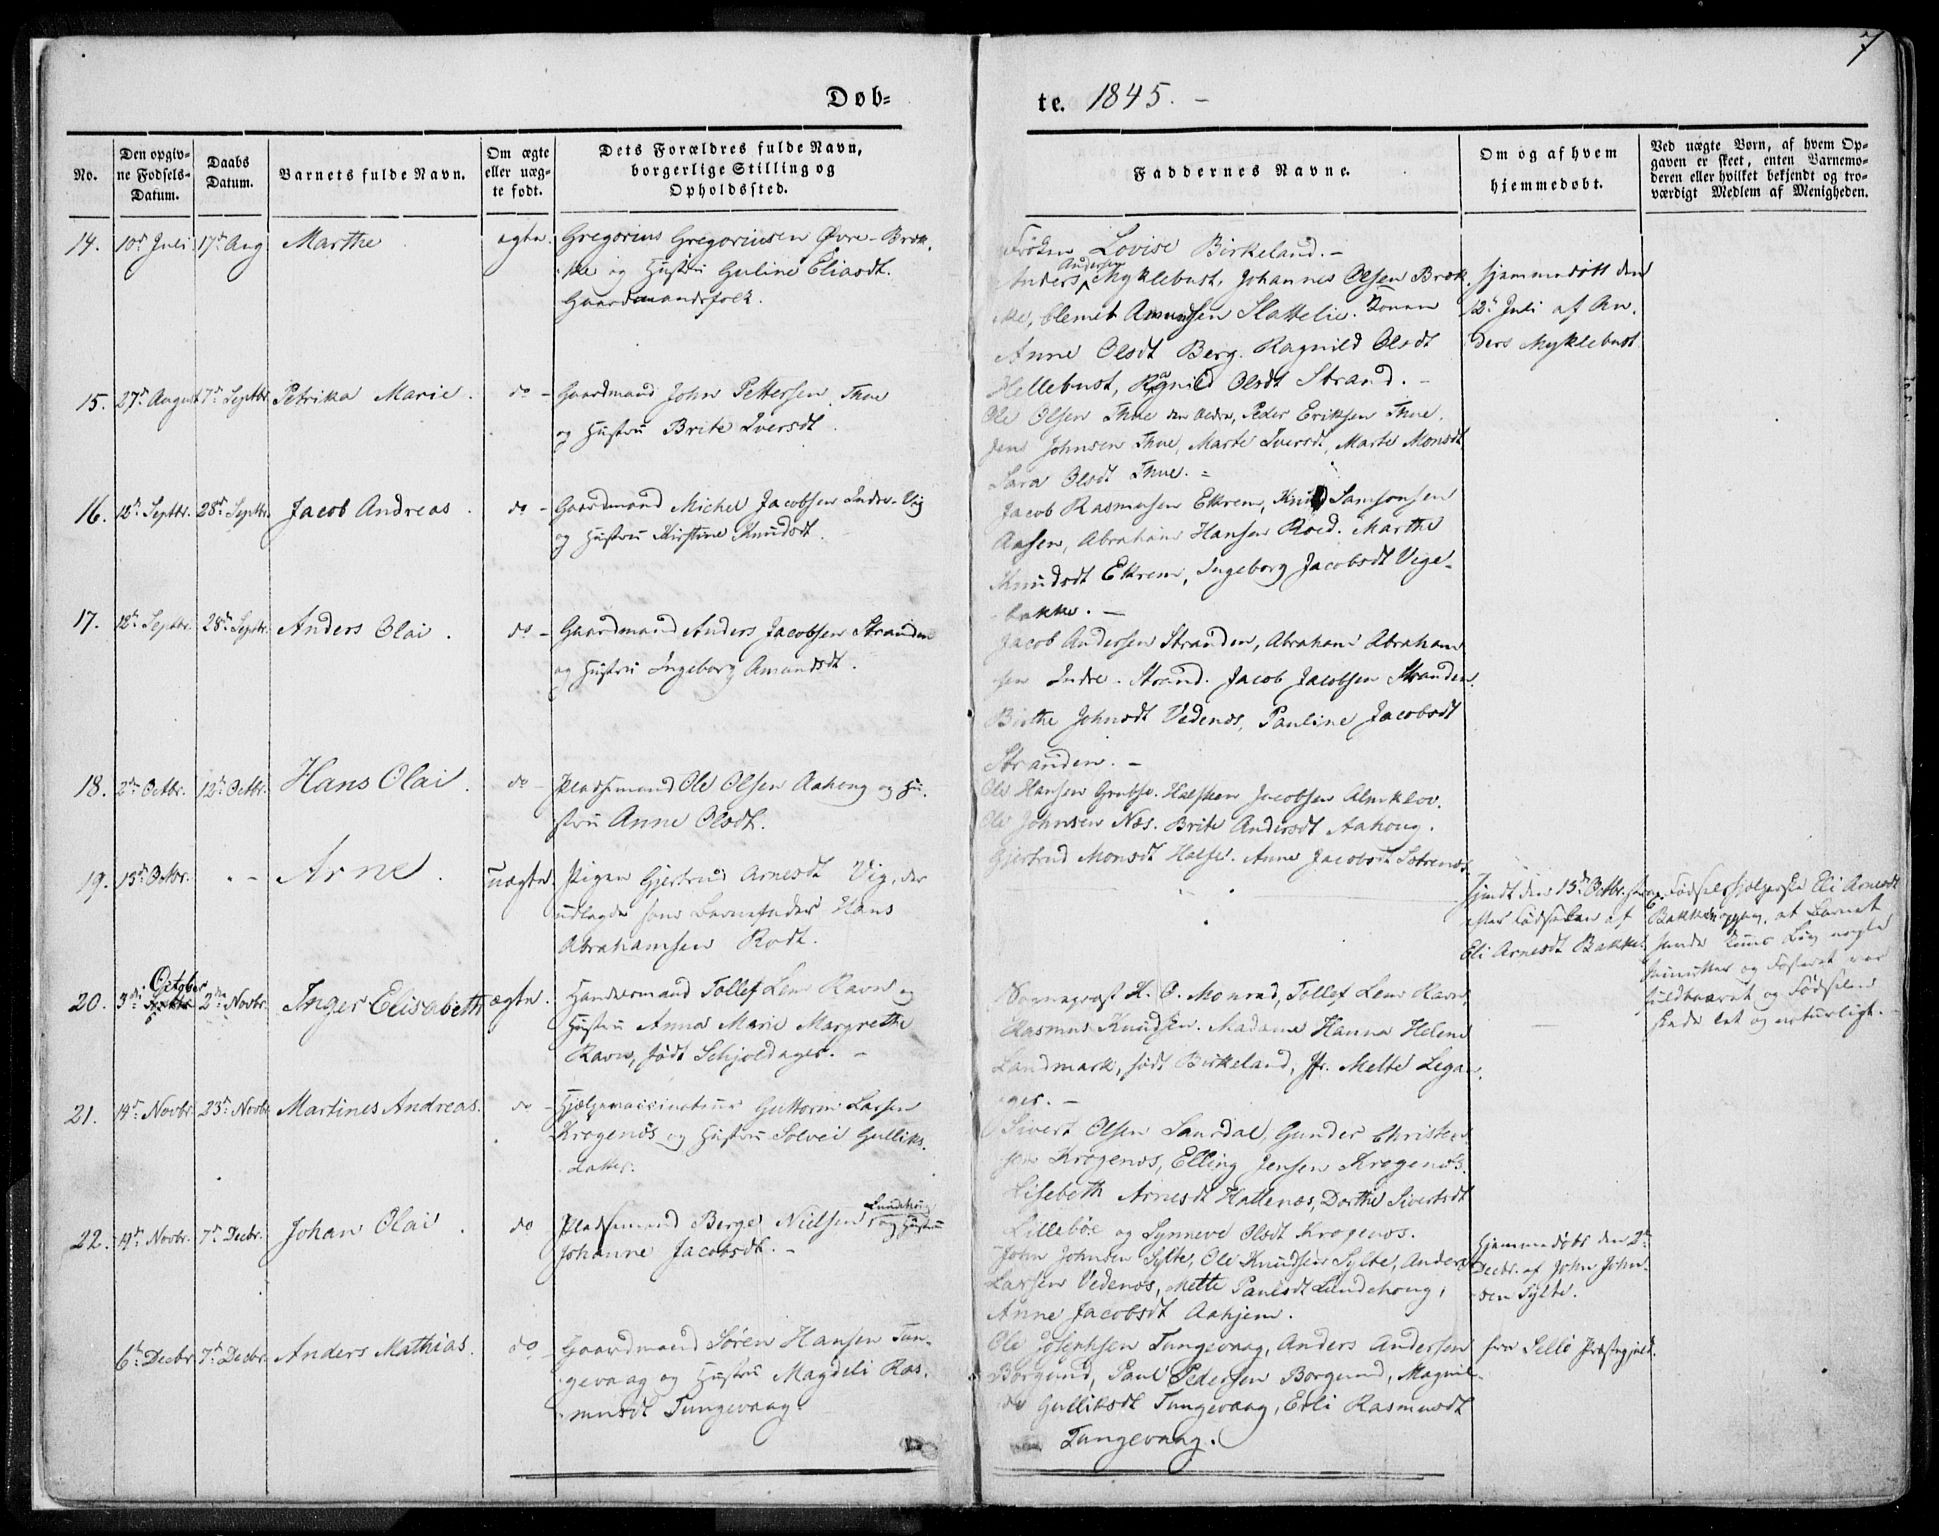 7
Døb-
te. 1845. -
No.
Den opgiv-
ne Fødsels-
Datum.
Daabs
Datum.
Barnets fulde Navn.
Om ægte
eller uæg-
te født.
Dets Forældres fulde Navn,
borgerlige Stilling og
Opholdssted.
Faddernes Navne.
Om og af hvem
hjemmedøbt.
Ved uægte Børn, af hvem Op-
gaven er skeet, enten Barnemo-
deren eller hvilket bekjendt og tro-
værdigt Medlem af Menigheden.
14. 10de Juli 17de Aug Marthe ægte. Gregorius Gregoriusen Øvre-Bræk-
ke og Hustru Guline Eliasdt.
Gaardmandsfolk.
Frøken Lovise Birkeland. -
Andersen
Anders Myklebust, Johannes Olsen Bræk-
ke, Clemet Amundsen Slattelie. Konen
Anne Olsdt Berg. Ragnild Olsdt
Hellebust, Ragnild Olsdt Strand. -
Hjemmedøbt den
12te Juli af An-
ders Myklebust
15. 27de August 7de Septbr. Petrika Marie. do - Gaardmand John Pettersen Thue
og Hustru Brite Iversdt.
Ole Olsen Thue den Ældre, Peder Eriksen Thue.
Jens Johnsen Thue, Marte Iversdt, Marte Monsdt
Sara Olsdt Thue. =
16. 12te Septbr. 28de Septbr. Jacob Andreas. do - Gaardmand Michel Jacobsen Indre-Vig
og Hustru Kirstine Knudsdt.
Jacob Rasmusen Ekrem, Knud Samsonsen
Aasen, Abraham Hansen Roed. Marthe
Knudsdt Ekrem, Ingeborg Jacobsdt Vige-
bakke. -
17. 12te Septbr. 28de Septbr. Anders Olai. do - Gaardmand Anders Jacobsen Stranden
og Hustru Ingeborg Amundsdt.
Jacob Andersen Stranden, Abraham Abraham-
sen Indre-Strand. Jacob Jacobsen Stranden.
Birthe Johnsdt Vedenæs, Pauline Jacobsdt
Stranden. -
18. 2den Octbr. 12te Octbr. Hans Olai. do - Pladsmand Ole Olsen Aahoug og Hu-
stru Anne Olsdt.
Ole Hansen Grubse. Halsten Jacobsen Almklov.
Ole Johnsen Næs. Brite Andersdt Aahoug.
Gjertrud Monsdt Halse. Anne Jacobsdt Sætrenæs
19. 15de Octbr. - - Arne. uægte. Pigen Gjertrud Arnesdt Vig, der
udlagde som Barnefader Hans
Abrahamsen Rødt.
Hjemdt den 15de Octbr. strax
efter Fødselen af
Eli Arnesdt Bakke.
Fødselshjælperske Eli Arnesdt
Bakke opgav, at Barnet
havde Liv nogle
Minutter og Fosteret var
fuldbaaret og Fødselen
skede let og naturligt.
20. 3die October 2den Novbr. Inger Elisabeth ægte. Handelsmand Tollef Lem Ravn og
Hustru Anna Marie Margrethe
Ravn, født Schjoldager. -
Sognepræst H. O. Monrad, Tollef Lem Ravn
Rasmus Knudsen. Madame Hanna Helene
Landmark, født Birkeland, Jfr. Melte Lega-
ger. -
21. 14de Novbr. 23de Novbr. Martines Andreas. do - Hjælpevaccinateur Guttorm Larsen
Krogenæs og Hustru Solvei Gulliks-
datter.
Sivert Olsen Saurdal, Gunder Christen-
sen Krogenæs, Elling Jensen Krogenæs.
Lisebeth Arnesdt Hallenæs, Dorthe Sivertsdt
Lillebøe og Synneve Olsdt Krogenæs.
22. 19de Novbr. 7de Decbr. Johan Olai. do Pladsmand Berge Nielsen Lundehoug og Hustru
Johanne Jacobsdt. -
John Johnsen Sylte, Ole Knudsen Sylte, Anders
Larsen Vedenæs, Mette Paulsdt Lundehoug,
Anne Jacobsdt Aahjem.
Hjemmedøbt den 2den
Decbr. af John John-
sen Sylte.
6te Decbr 7de Decbr. Anders Mathias. do Gaardmand Søren Hansen Tun-
gevaag og Hustru Magdeli Ras-
musdt Tungevaag.
Ole Josephsen Tungevaag, Anders Andersen
Borgund, Paul Pedersen Borgund, Magnil-
de Gulliksdt Tungevaag, Erli Rasmusdt
Tungevaag.
fra Sellø Præstegjeld.